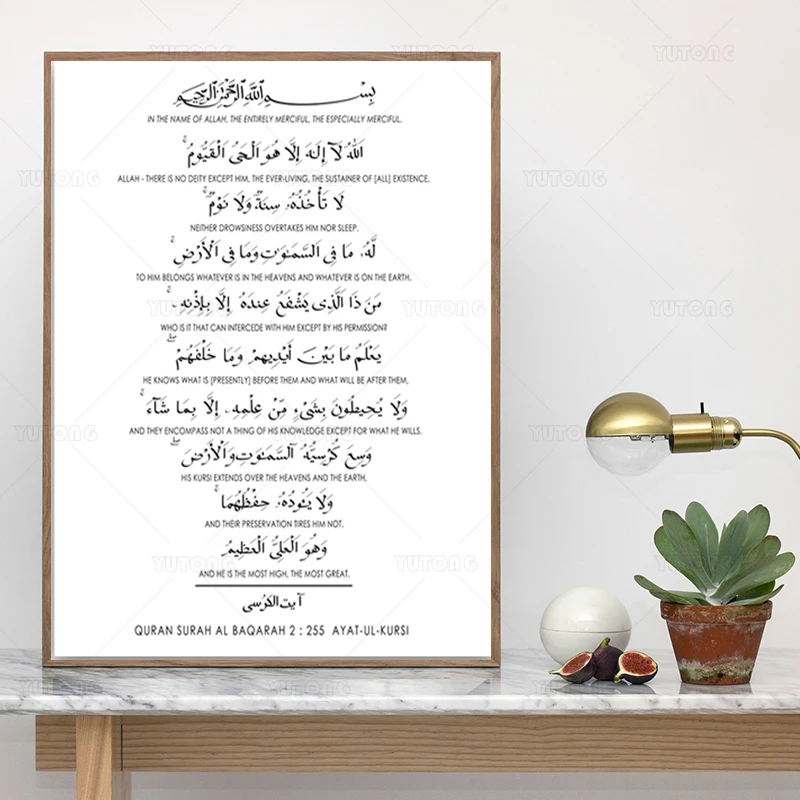 بِسْمِ ٱللَّهِ ٱلرَّحْمَٰنِ ٱلرَّحِيمِ
IN THE NAME OF ALLAH, THE ENTIRELY MERCIFUL, THE ESPECIALLY MERCIFUL.
ٱللَّهُ لَآ إِلَٰهَ إِلَّا هُوَ ٱلْحَىُّ ٱلْقَيُّومُ ۚ
ALLAH - THERE IS NO DEITY EXCEPT HIM, THE EVER-LIVING, THE SUSTAINER OF [ALL] EXISTENCE.
لَا تَأْخُذُهُۥ سِنَةٌ وَلَا نَوْمٌ ۚ
NEITHER DROWSINESS OVERTAKES HIM NOR SLEEP.
لَّهُۥ مَا فِى ٱلسَّمَٰوَٰتِ وَمَا فِى ٱلْأَرْضِ ۗ
TO HIM BELONGS WHATEVER IS IN THE HEAVENS AND WHATEVER IS ON THE EARTH.
مَن ذَا ٱلَّذِى يَشْفَعُ عِندَهُۥٓ إِلَّا بِإِذْنِهِۦ ۚ
WHO IS IT THAT CAN INTERCEDE WITH HIM EXCEPT BY HIS PERMISSION?
يَعْلَمُ مَا بَيْنَ أَيْدِيهِمْ وَمَا خَلْفَهُمْ ۖ
HE KNOWS WHAT IS [PRESENTLY] BEFORE THEM AND WHAT WILL BE AFTER THEM,
وَلَا يُحِيطُونَ بِشَىْءٍ مِّنْ عِلْمِهِۦٓ إِلَّا بِمَا شَآءَ ۚ
AND THEY ENCOMPASS NOT A THING OF HIS KNOWLEDGE EXCEPT FOR WHAT HE WILLS.
وَسِعَ كُرْسِيُّهُ ٱلسَّمَٰوَٰتِ وَٱلْأَرْضَ ۖ
HIS KURSI EXTENDS OVER THE HEAVENS AND THE EARTH,
وَلَا يَـُٔودُهُۥ حِفْظُهُمَا ۚ
AND THEIR PRESERVATION TIRES HIM NOT.
وَهُوَ ٱلْعَلِىُّ ٱلْعَظِيمُ
AND HE IS THE MOST HIGH, THE MOST GREAT.
آیت الکرسی
QURAN SURAH AL BAQARAH 2 : 255 AYAT-UL-KURSI
YUTONG